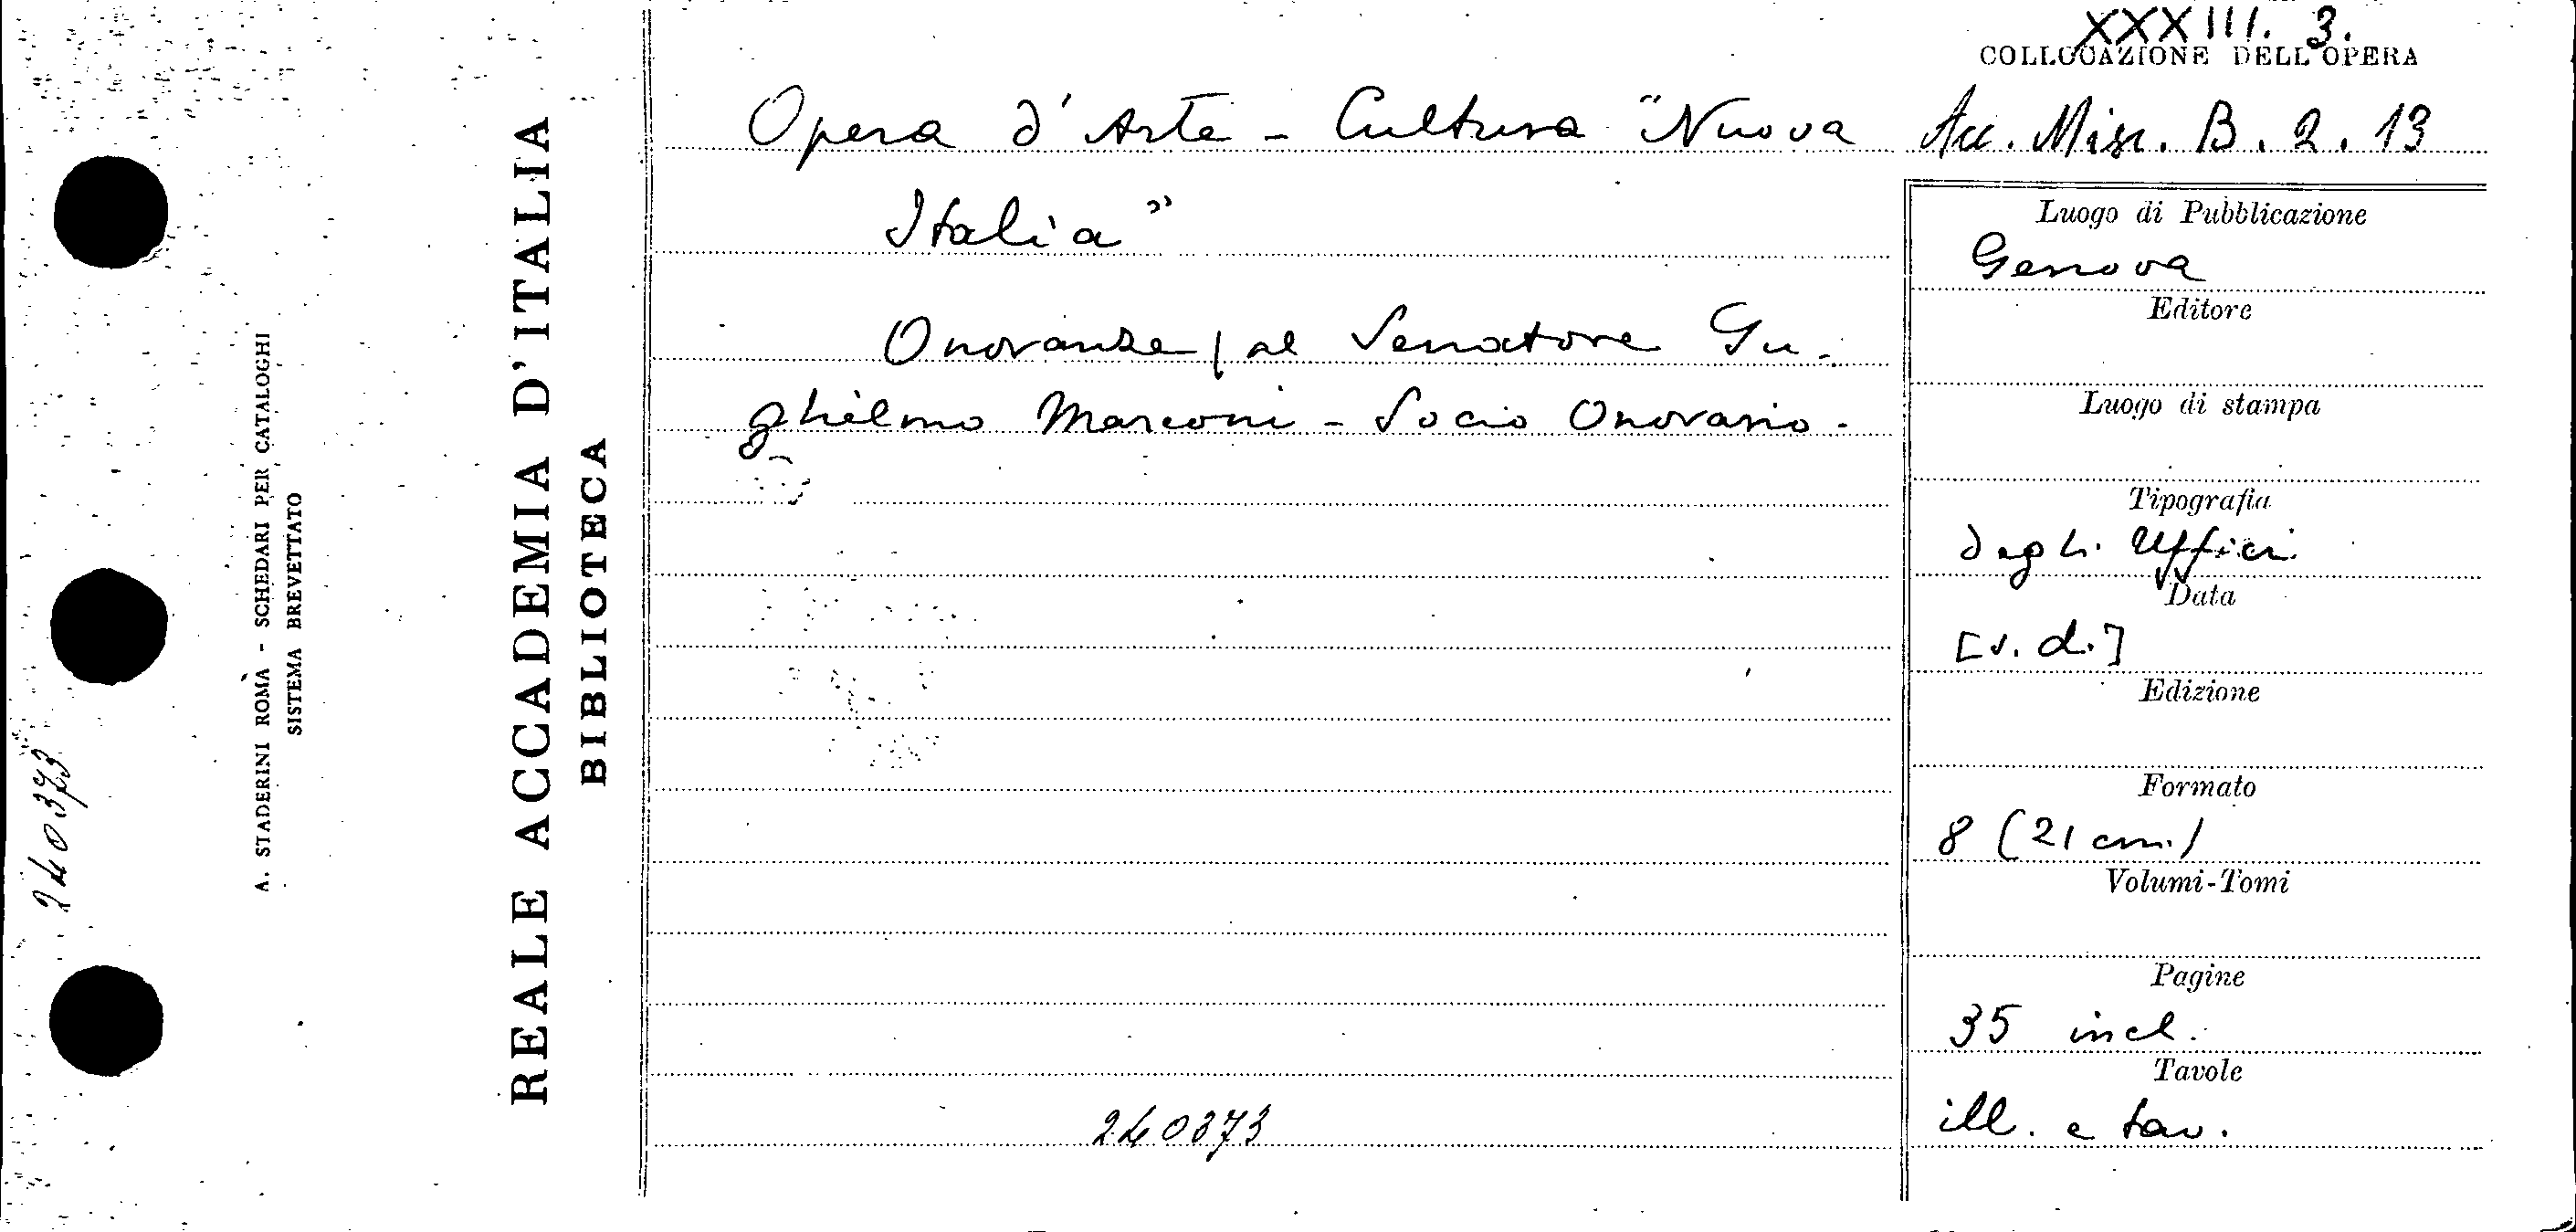 XXXIII. 3.
COLLOCAZIONE DELL'OPERA
Opera d'Arte - Cultura "Nuova
Italia"
Onoranze / al Senatore Gu-
ghielmo Marconi - Socio Onorario.
240373
Acc. Misc. B. 2. 13
Luogo di Pubblicazione
Genova
Editore
Luogo di stampa
Tipografia
degli Uffici
Data
[s. d.]
Edizione
Formato
8 (21 cm.)
Volumi-Tomi
Pagine
35 incl.
Tavole
ill. e tav.
REALE ACCADEMIA D'ITALIA
BIBLIOTECA
A. STADERINI ROMA - SCHEDARI PER CATALOGHI
SISTEMA BREVETTATO
240373